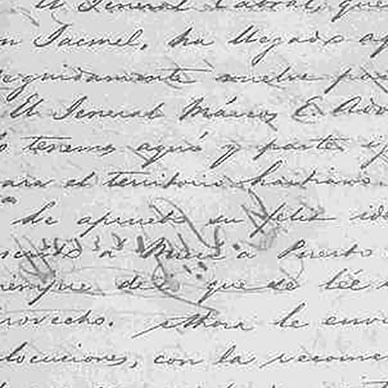 El General Cabral, que
en Jacmel, ha llegado aq
seguidamente vuelve par
El General Marcos E. Ado
lo tenemos aquí y parte
para el territorio haitiano
de apunte su feliz ide
a Puerto
siempre de que se lée
provecho. Ahora le envi
locuciones, con la recome